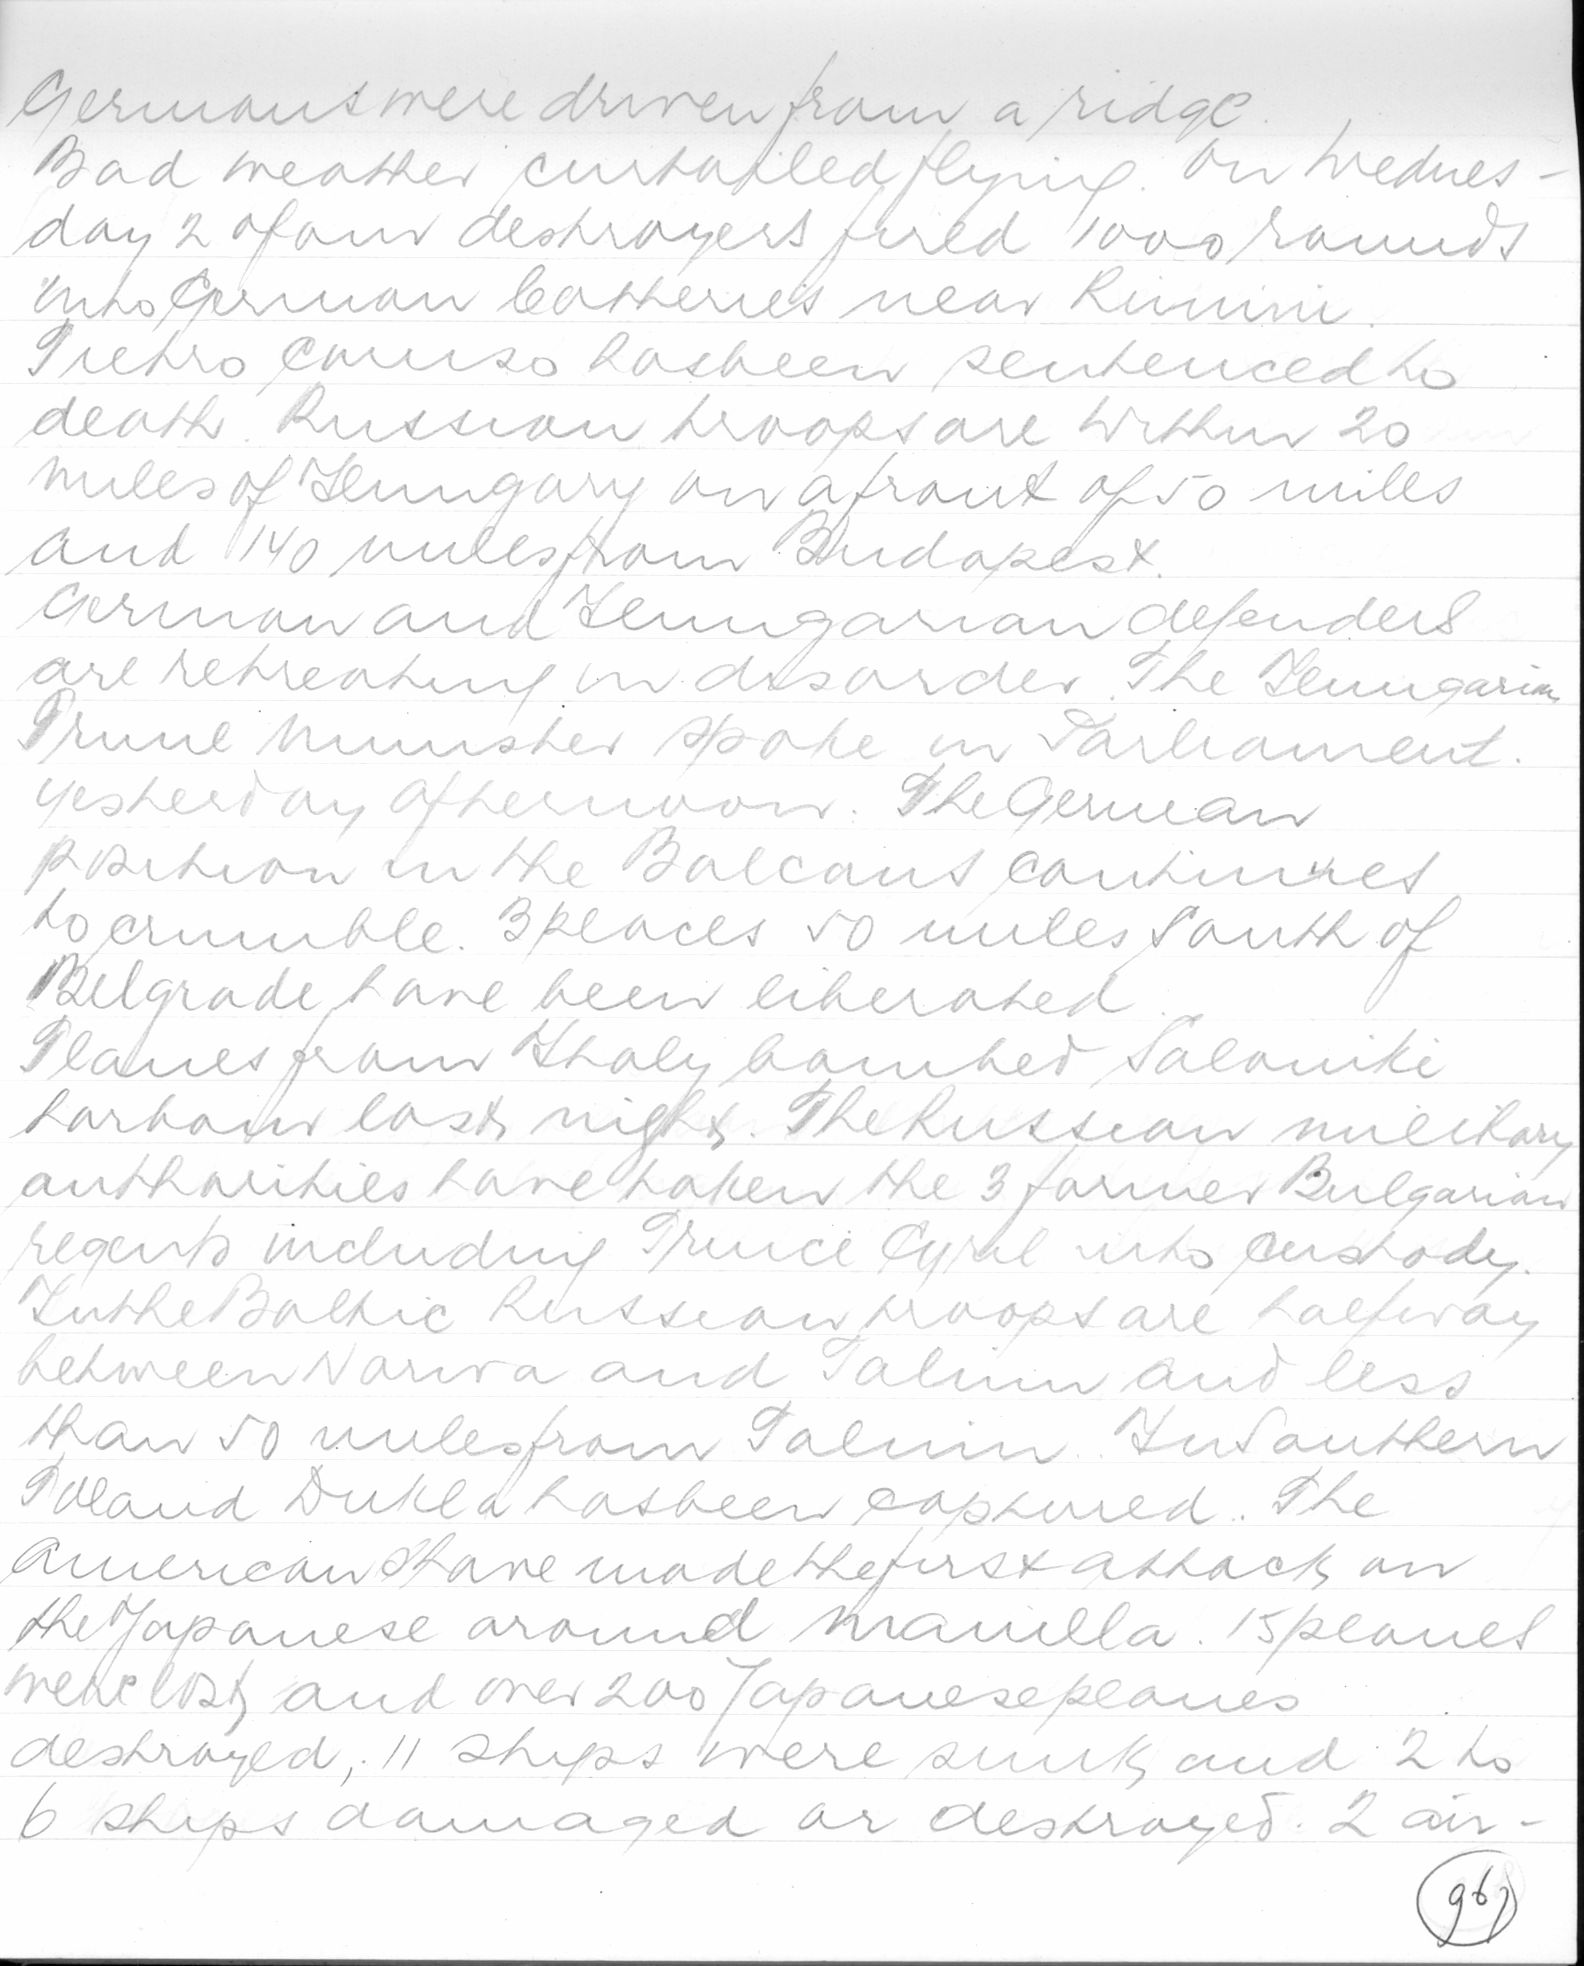 Germans were driven from a ridge.
Bad weather curtailed flying. On Wednes-
day 2 of our destroyers fired 1000 rounds
into German batteries near Rimini.
Pietro Caruso has been sentenced to
death. Russian troops are within 20
miles of Hungary on a front of 50 miles
and 140 miles from Budapest.
German and Hungarian defenders
are retreating in disorder. The Hungarian
Prime Minister spoke in Parliament.
yesterday afternoon. The German
position in the Balcans continues
to crumble. 3 places 50 miles South of
Belgrade have been liberated.
Planes from Italy bombed Saloniki
harbour last night. The Russian military
authorities have taken the 3 former Bulgarian
regents including Prince Cyril into custody.
In the Baltic Russian troops are halfway
between Narva and Talinn and less
than 50 miles from Talinn. In Southern
Poland Dukla has been captured. The
Americans have made the first attack on
the Japanese around Manilla. 15 planes
were lost and over 200 Japanese planes
destroyed; 11 ships were sunk and 2 to
6 ships damaged or destroyed. 2 air-
967